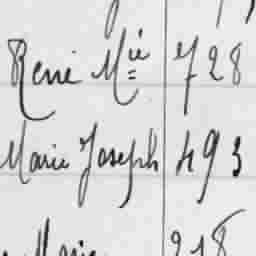 René Mié 728
Marie Joseph 493
Marie 218